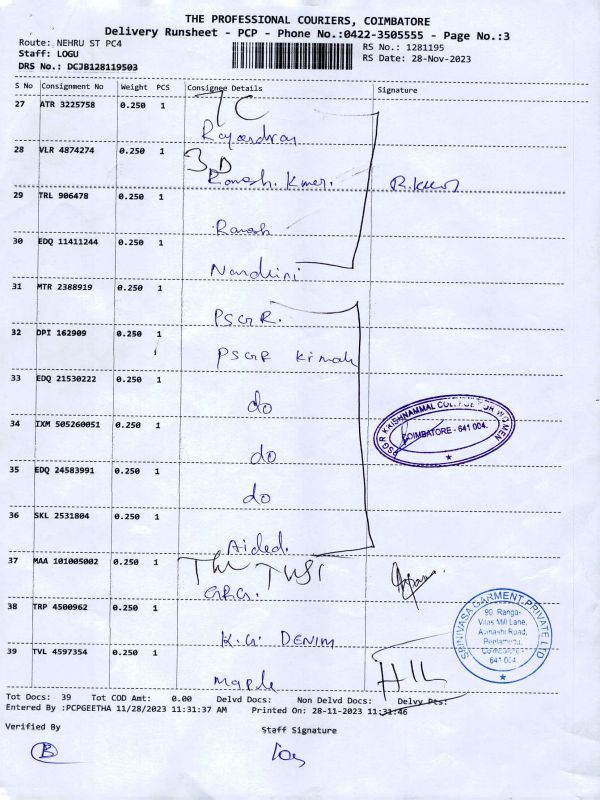 THE PROFESSIONAL COURIERS, COIMBATORE
Delivery Runsheet - PCP - Phone No.:0422-3505555 - Page No.:3
Route: NEHRU ST PC4
RS No.: 1281195
Staff: LOGU
RS Date: 28-Nov-2023
DRS No.: DCJB128119503
S No Consignment No Weight PCS Consignee Details Signature
27 ATR 3225758 0.250 1
Rajendran
28 VLR 4874274 0.250 1 3D
Ramesh. Kumar. R.Kumar
29 TRL 906478 0.250 1
Ramesh
30 EDQ 11411244 0.250 1
Nandhini
31 MTR 2388919 0.250 1
PSGR.
32 DPI 162909 0.250 1
PSGR Krinah
33 EDQ 21530222 0.250 1
do
34 IXM 505260051 0.250 1
do
PSGR KRISHNAMMAL COLLEGE FOR WOMEN
COIMBATORE - 641 004.
35 EDQ 24583991 0.250 1
do
36 SKL 2531804 0.250 1
Aided.
37 MAA 101005002 0.250 1
GRG.
38 TRP 4500962 0.250 1
K.G. DENIM
SRINIVASA GARMENT PRIVATE LTD
90, Ranga-
Vilas Mill Lane,
Avinashi Road,
Peelamedu,
COIMBATORE -
641 004
39 TVL 4597354 0.250 1
Maple
Tot Docs: 39 Tot COD Amt: 0.00 Delvd Docs: Non Delvd Docs: Delvy Pts:
Entered By :PCPGEETHA 11/28/2023 11:31:37 AM Printed On: 28-11-2023 11:31:46
Verified By
Staff Signature
B